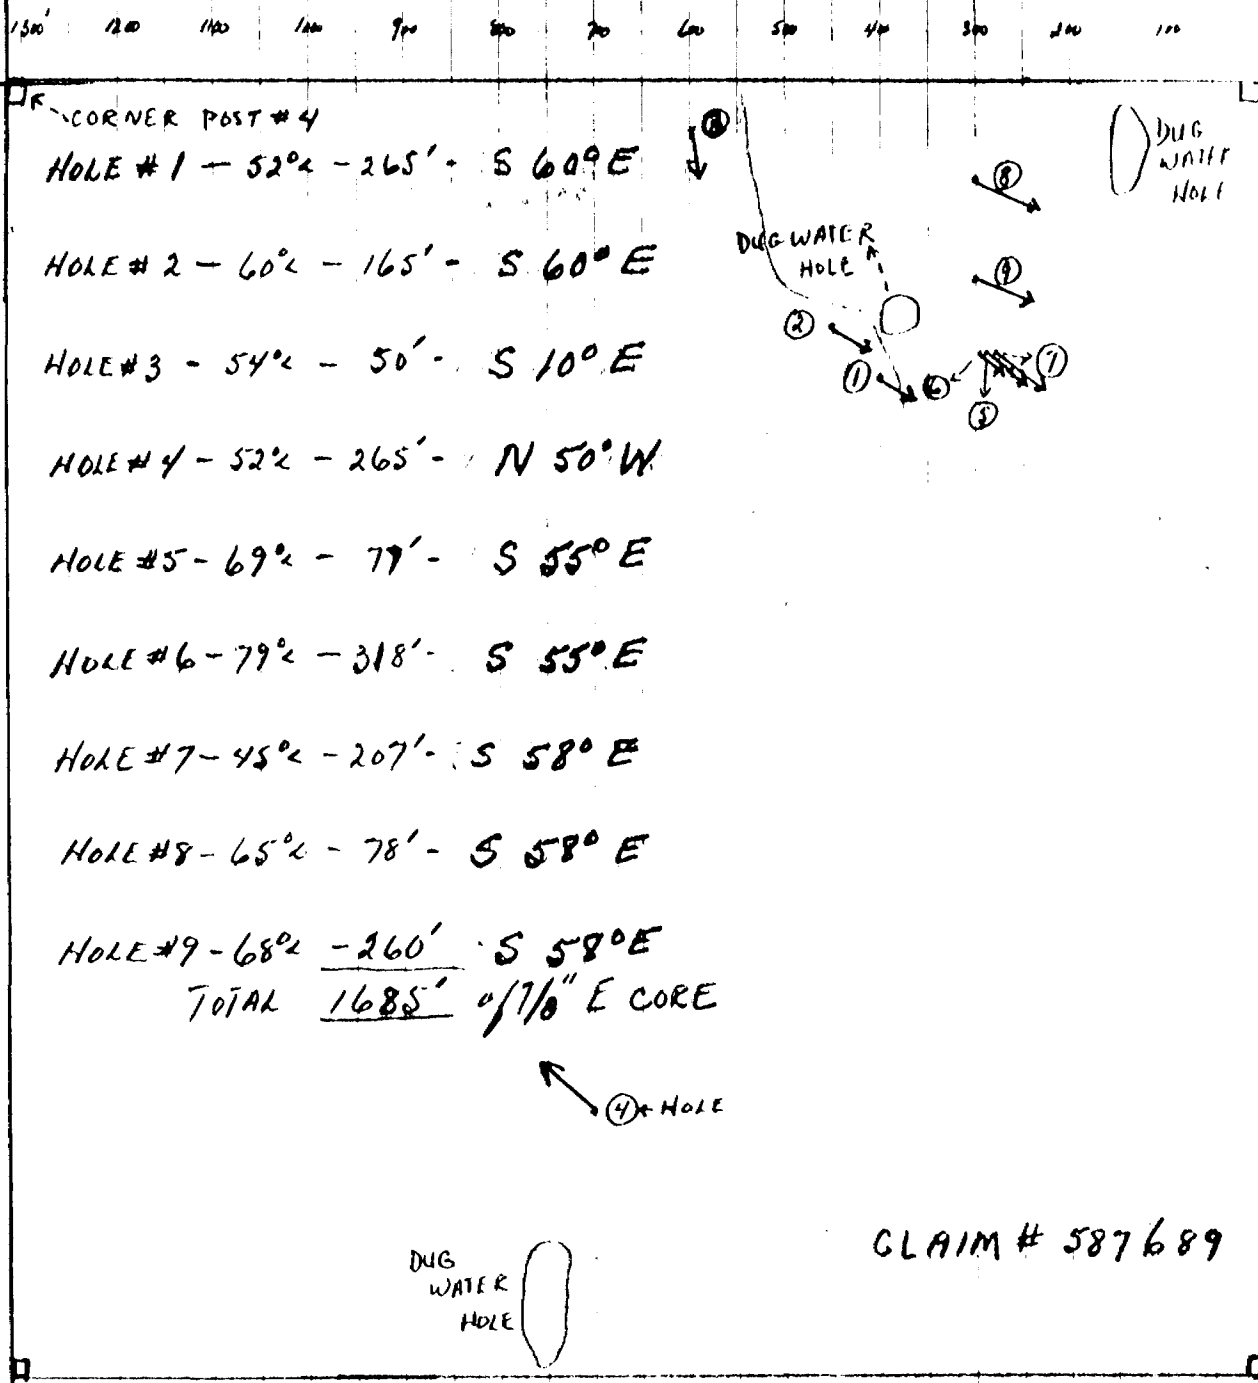 1300' 1200 1100 1000 900 800 700 600 500 400 300 200 100
CORNER POST #4
HOLE #1 - 52°∠ - 265' - S 60° E
HOLE #2 - 60°∠ - 165' - S 60° E
HOLE #3 - 54°∠ - 50' - S 10° E
HOLE #4 - 52°∠ - 265' - N 50° W
HOLE #5 - 69°∠ - 77' - S 55° E
HOLE #6 - 79°∠ - 318' - S 55° E
HOLE #7 - 45°∠ - 207' - S 58° E
HOLE #8 - 65°∠ - 78' - S 58° E
HOLE #9 - 68°∠ - 260' S 58° E
TOTAL 1685' of 7/8" E CORE
DUG
WATER
HOLE
8
DUG WATER
HOLE
9
2
1
6
7
5
4 HOLE
CLAIM # 587689
DUG
WATER
HOLE